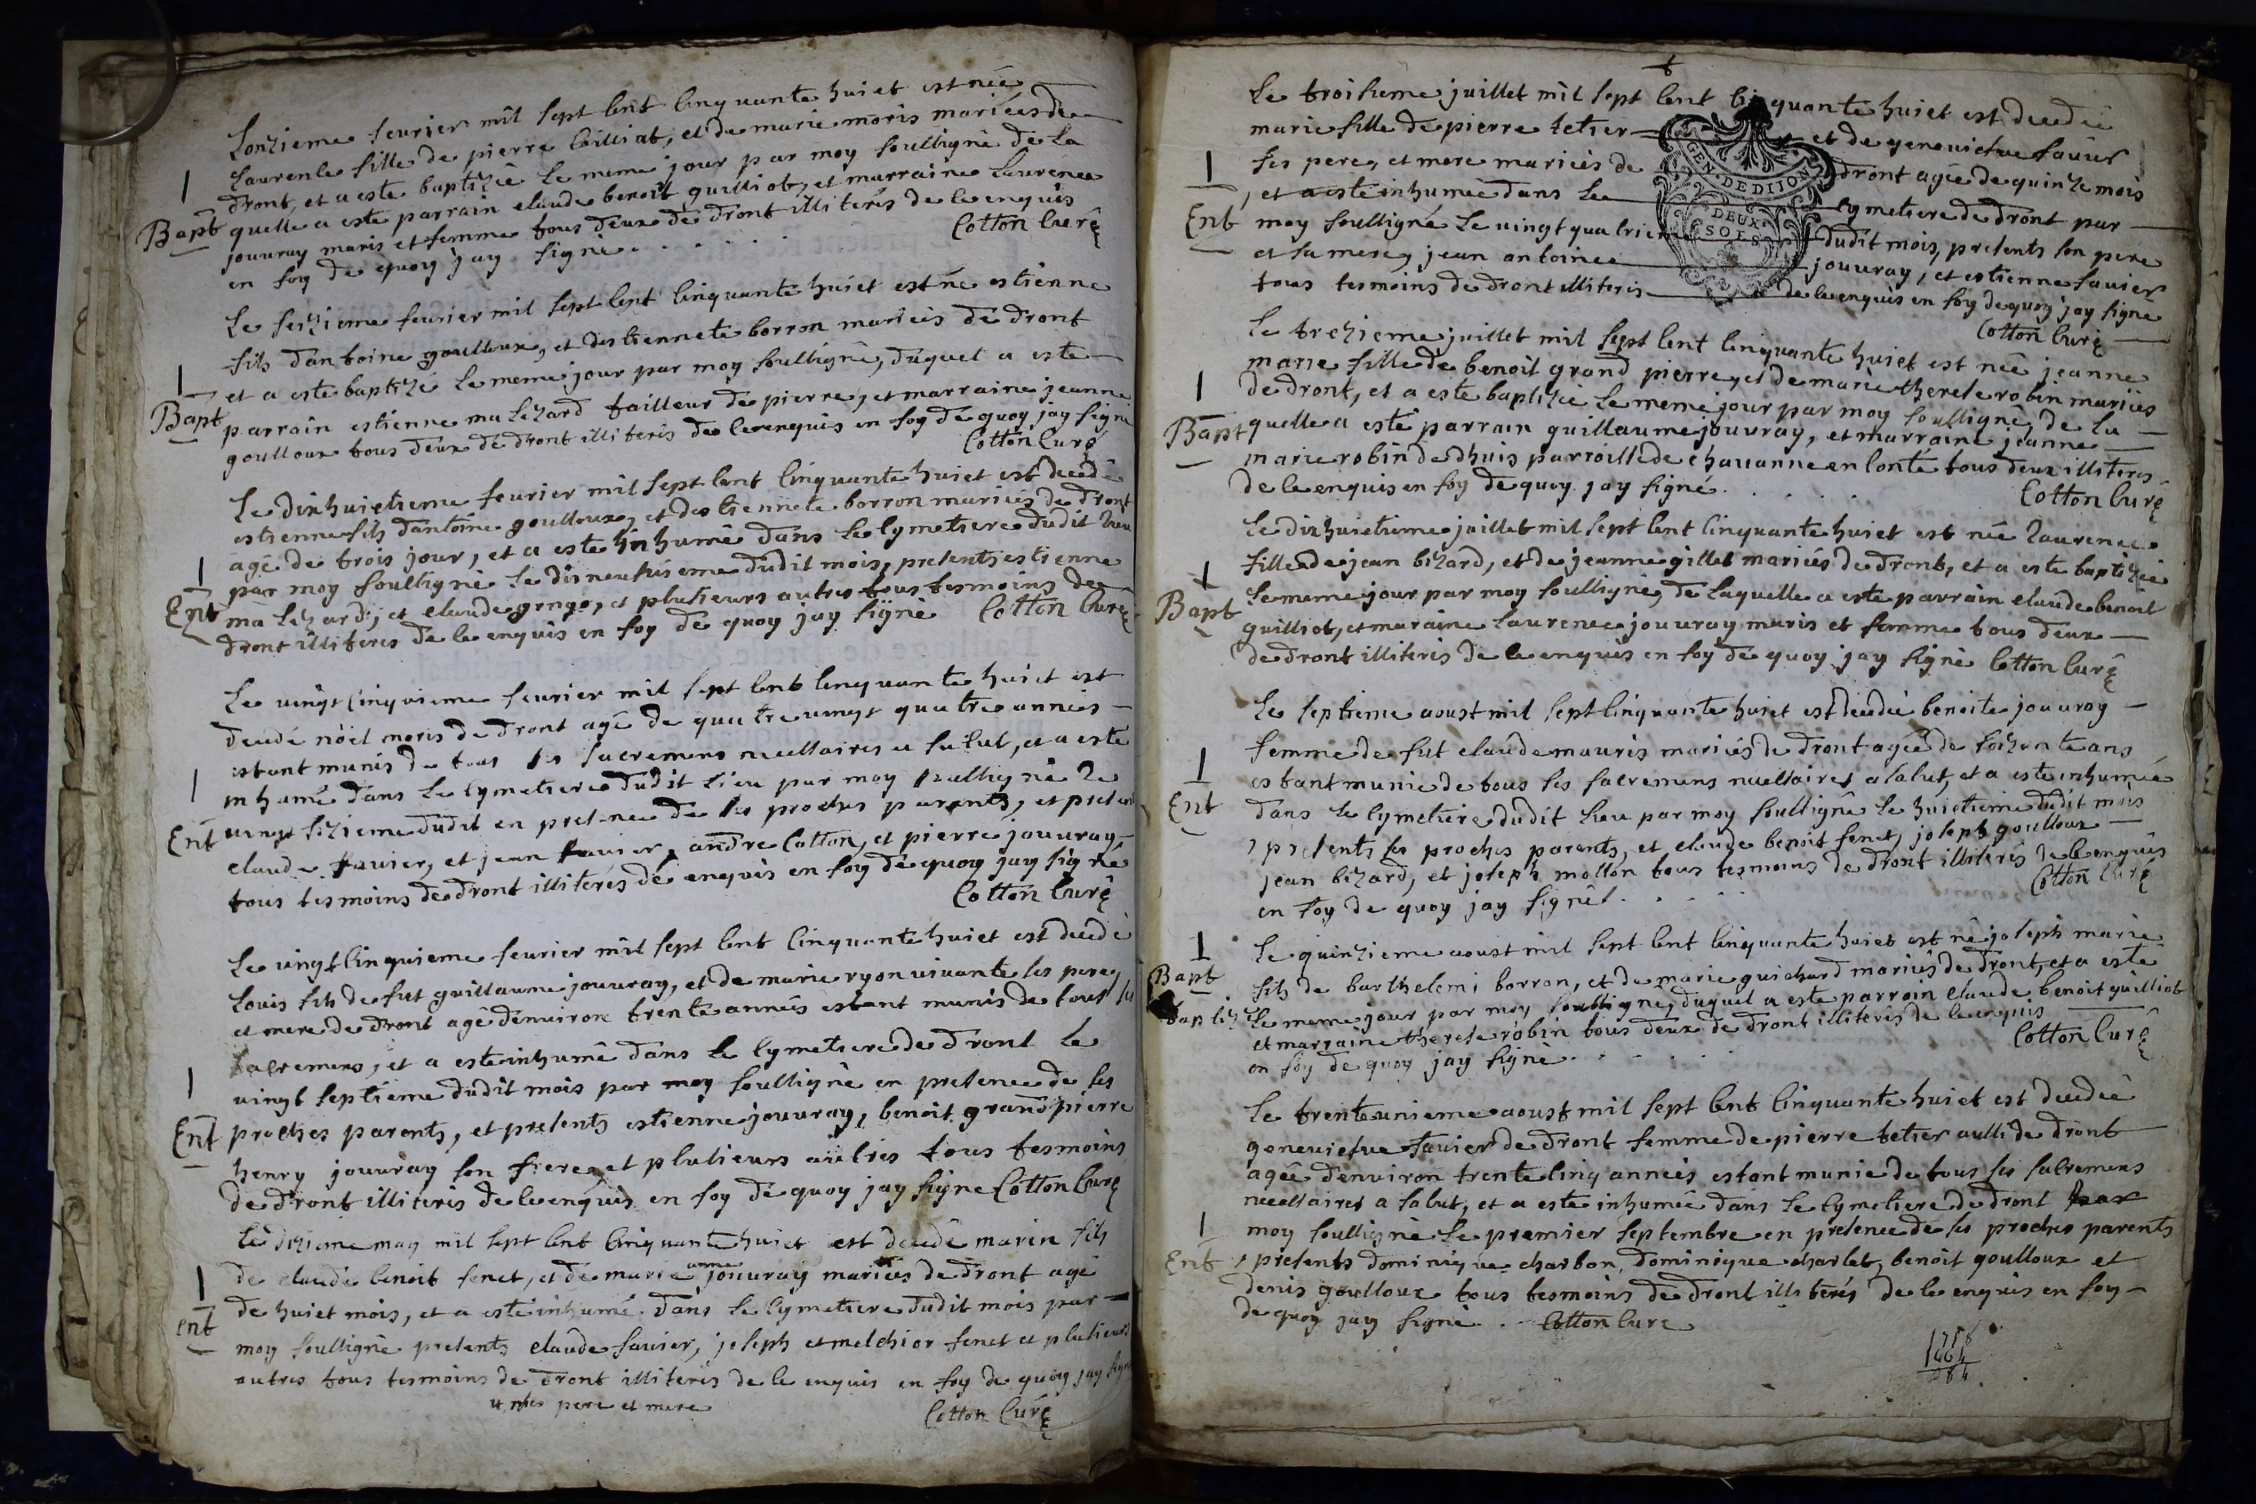 Lonzieme feurier mil sept cent cinquante huict est née
Laurence fille de pierre et de marie moris mariées de
dront, et a este baptizée le meme jour par moy soussigné de la
1
Bapt
quelle a este parrain claude benoit guilliot, et marraine Laurence
jouuray maris et femme tous deux de dront illiterés de ce enquis
en foy de quoy jay signe . . . . . . Cotton Curé
Le seizieme feurier mil sept cent cinquante huict est né estienne
fils dantoine goulloux, et destiennete borron mariées de dront
1
et a este baptizé le meme jour par moy soussigné, duquel a este
Bapt
parrain estienne malizard tailleur de pierre, et marraine jeanne
goulloux tous deux de dront illiterés de ce enquis en foy de quoy jay signé
Cotton Curé
Le dixhuictieme feurier mil sept cent cinquante huict est decedé
estienne fils dantoine goulloux, et destiennete borron mariées de dront
agé de trois jour, et a este inhumé dans le cymetiere dudit lieu
1
par moy soussigné le disneufuieme dudit mois, presents estienne
Ent
malizard, et claude grnge, et plusieurs autres tous tesmoins de
dront illiteres de ce enquis en foy de quoy jay signe Cotton Curé
Le vingt cinquieme feurier mil sept cent cinquante huict est
decedé nöel moris de dront agé de quatre uingt quatre annees
estant munis de tous les sacremens necessaires a salut, et a este
1
inhumé dans le cymetiere dudit lieu par moy soussigné le
Ent
uingt sizieme dudit en presence de ses proches parents, et present
claude fauier, et jean fauier, andre Cotton, et pierre jouuray
tous tesmoins de dront illiterés de enquis en foy de quoy jay signé
Cotton Curé
Le vingt cinquieme feurier mil sept cent cinquante huict est decedé
Louis fils de fut guillaume jouuray, et de marie ryon viuante ses pere
et mere de dront agé denviron trente années estant munis de tous les
sacremens, et a este inhumé dans le cymetiere de dront le
1
vingt septieme dudit mois par moy soussigné en presence de ses
Ent
proches parents, et presents estienne jouuray, benoit grand pierre
henry jouuray son frere et plusieurs autres tous tesmoins
de dront illiterés de ce enquis en foy de quoy jay signe Cotton Curé
Le dizieme may mil sept cent cinquante huict est decedé marin fils
1
de claude benoit fenet, et de marie anne jouuray mariées de dront agé
de huict mois, et a este inhumé dans le cymetiere dudit mois par
ent
moy soussigné presents claude fauier, joseph et melchior fenet et plusieurs
autres tous tesmoins de dront illiterés de ce enquis en foy de quoy jay signe
pere et mere
Cotton Curé
Le troisieme juillet mil sept cent cinquante huict est decedée
marie fille de pierre tetier et de geneuiefue fauier
1
ses pere, et mere mariées de dront agée de quinze mois
, et a este inhumée dans le cymetiere de dront par
Ent
moy soussigné le vingt quatrieme dudit mois, presents son pere
et sa mere, jean antoine jouuray, et estienne fauier
tous tesmoins de dront illiteris de ce enquis en foy de quoy jay signe
Cotton Curé
GEN. DE DIJON
DEUX
SOLS
Le trezieme juillet mil sept cent cinquante huict est née jeanne
marie fille de benoit grand pierre, et de marie therese robin mariées
1
de dront, et a este baptizée le meme jour par moy soussigné, de la
Bapt
quelle a este parrain guillaume jouuray, et marraine jeanne
marie robin de dhuis parroisse de chauanne en Conté tous deux illiteres
de ce enquis en foy de quoy jay signé . . . . Cotton Curé
Le dixhuictieme juillet mil sept cent cinquante huict est née Laurence
1
fille de jean bizard, et de jeanne gillet mariées de dront, et a este baptizée
Bapt
le meme jour par moy soussigné, de laquelle a este parrain claude benoit
guilliot, et maraine laurence jouuray maris et femme tous deux
de dront illiterés de ce enquis en foy de quoy jay signé Cotton Curé
Le septieme aoust mil sept cinquante huict est decedée benoite jouuray
femme de fut claude mauris mariés de dront agée de soizante ans
1
estant munie de tous ses sacremens necessaires a salut, et a este inhumée
Ent
dans le cymetiere dudit lieu par moy soussigné le huictieme dudit mois
, presents ses proches parents, et claude benoit fenet, joseph goulloux
jean bizard, et joseph mollon tous tesmoins de dront illiterés de ce enquis
en foy de quoy jay signé . . . . Cotton Curé
1
Le quinzieme aoust mil sept cent cinquante huict est né joseph marie
Bapt
fils de barthelemi borron, et de marie guichard mariés de dront, et a este
baptizé le meme jour par moy soubsigné, duquel a este parrain claude benoit guilliot
et marraine therese robin tous deux de dront illiterés de ce enquis
en foy de quoy jay signé . . . . . Cotton Curé
Le trente unieme aoust mil sept cent cinquante huict est decedée
geneuiefue fauier de dront femme de pierre tetier aussi de dront
agée denviron trente cinq années estant munie de tous ses sacremens
necessaires a salut, et a este inhumée dans le cymetiere de dront par
1
moy soussigné le premier septembre en presence de ses proches parents
Ent
, presents dominique charbon, dominique charlet, benoit goulloux et
denis goulloux tous tesmoins de dront illiterés de ce enquis en foy
de quoy jay signé . . Cotton Curé
1758